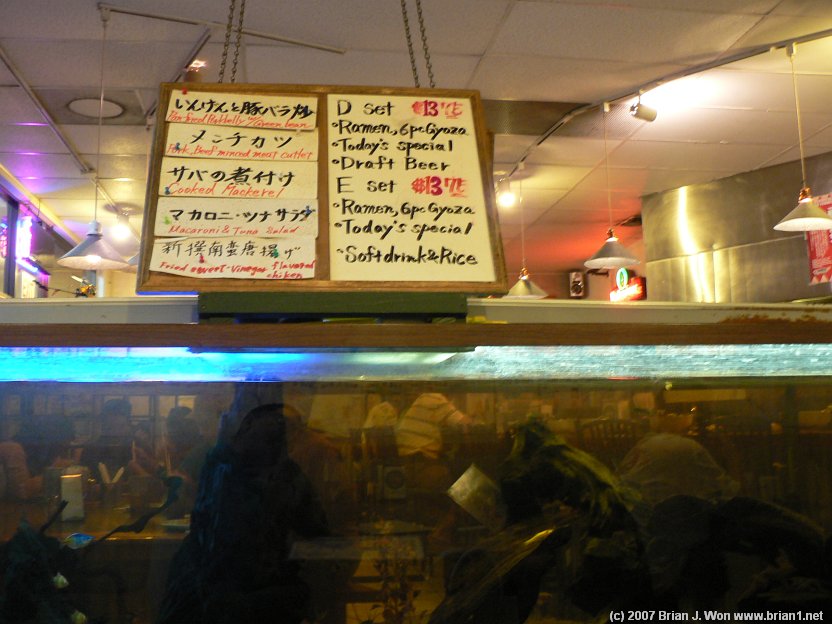 いんげんと豚バラ炒
Pan fried Porkbelly w/Green bean
メンチカツ
Pork, Beef minced meat cutlet
サバの煮付け
Cooked Mackerel
マカロニ・ツナサラダ
Macaroni & Tuna Salad
新撰南蛮唐揚げ
Fried sweet-Vinegar flavored
chiken
D set $13.75
•Ramen, 6pc Gyoza
•Today's special
•Draft Beer
E set $13.75
•Ramen, 6pc Gyoza
•Today's special
•Soft drink & Rice
(c) 2007 Brian J. Won www.brian1.net